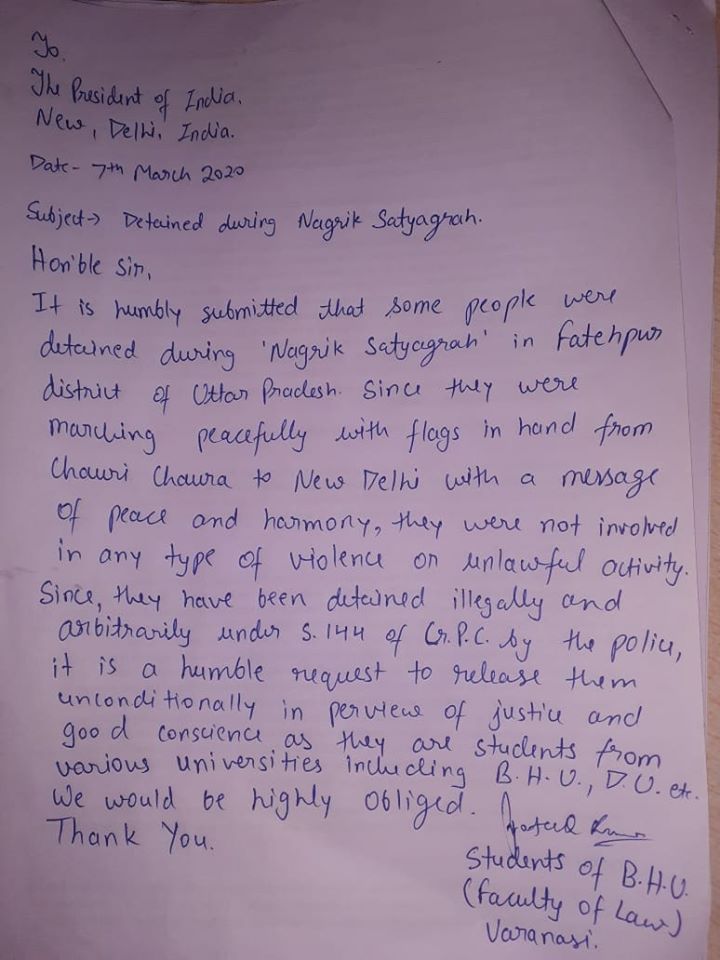 To,
The President of India.
New, Delhi, India.
Date- 7th March 2020
Subject→ Detained during Nagrik Satyagrah.
Hon'ble Sir,
It is humbly submitted that some people were
detained during 'Nagrik Satyagrah' in Fatehpur
district of Uttar Pradesh. Since they were
marching peacefully with flags in hand from
Chauri Chaura to New Delhi with a message
of peace and harmony, they were not involved
in any type of violence or unlawful activity.
Since, they have been detained illegally and
arbitrarily under S.144 of Cr.P.C. by the police,
it is a humble request to release them
unconditionally in perview of justice and
good conscience as they are students from
various universities including B.H.U., D.U. etc.
We would be highly obliged.
Thank You.
Students of B.H.U.
(Faculty of Law)
Varanasi.